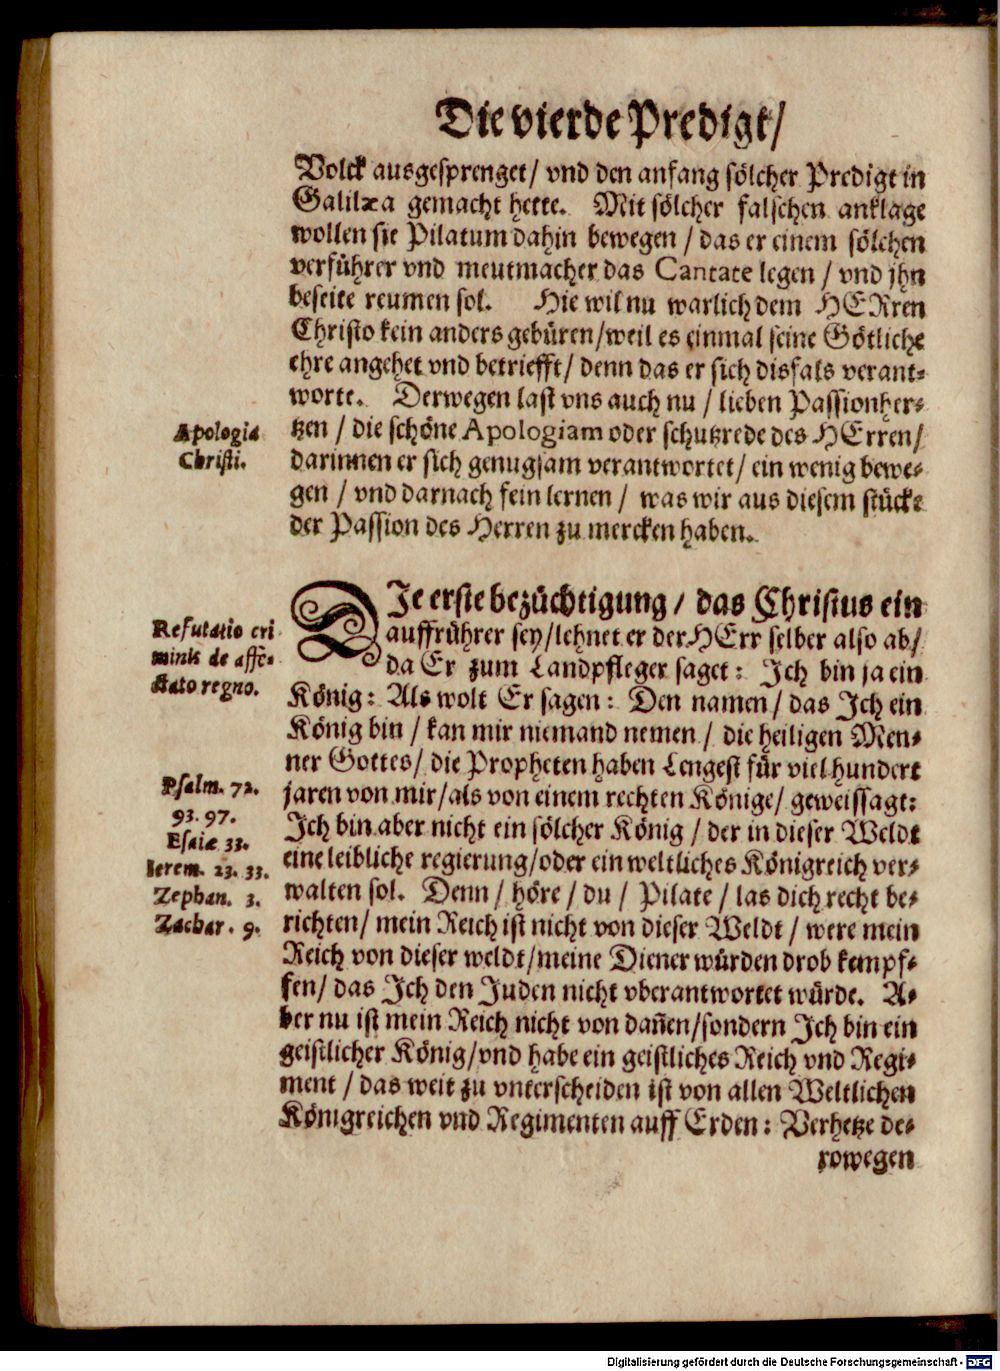 Die vierde Predigt/
Volck ausgesprenget/ vnd den anfang sölcher Predigt in
Galilæa gemacht hette. Mit sölcher falschen anklage
wollen sie Pilatum dahin bewegen / das er einem sölchen
verführer vnd meutmacher das Cantate legen / vnd jhn
beseite reumen sol. Hie wil nu warlich dem HERren
Christo kein anders gebüren/weil es einmal seine Götliche
ehre angehet vnd betriefft/ denn das er sich disfals verant-
worte. Derwegen last vns auch nu / lieben Passionher-
tzen / die schöne Apologiam oder schutzrede des HErren/
darinnen er sich genugsam verantwortet/ ein wenig bewe-
gen / vnd darnach fein lernen / was wir aus diesem stücke
der Passion des Herren zu mercken haben.
Apologia
Christi.
DIe erste bezüchtigung / das Christus ein
auffrührer sey/lehnet er der HErr selber also ab/
da Er zum Landpfleger saget: Ich bin ja ein
König: Als wolt Er sagen: Den namen / das Ich ein
König bin / kan mir niemand nemen / die heiligen Men-
ner Gottes/ die Propheten haben Lengest für viel hundert
jaren von mir/als von einem rechten Könige/ geweissagt:
Ich bin aber nicht ein sölcher König / der in dieser Weldt
eine leibliche regierung/oder ein weltliches Königreich ver-
walten sol. Denn / höre / du / Pilate / las dich recht be-
richten/ mein Reich ist nicht von dieser Weldt / were mein
Reich von dieser weldt/meine Diener würden drob kempf-
fen/ das Ich den Juden nicht vberantwortet würde. A-
ber nu ist mein Reich nicht von dañen/sondern Ich bin ein
geistlicher König/vnd habe ein geistliches Reich vnd Regi-
ment / das weit zu vnterscheiden ist von allen Weltlichen
Königreichen vnd Regimenten auff Erden: Verhetze de-
rowegen
Refutatio cri
minis de affe-
ctato regno.
Psalm. 72.
93. 97.
Esaiæ 33.
Ierem. 23. 33.
Zephan. 3.
Zachar. 9.
Digitalisierung gefördert durch die Deutsche Forschungsgemeinschaft - DFG